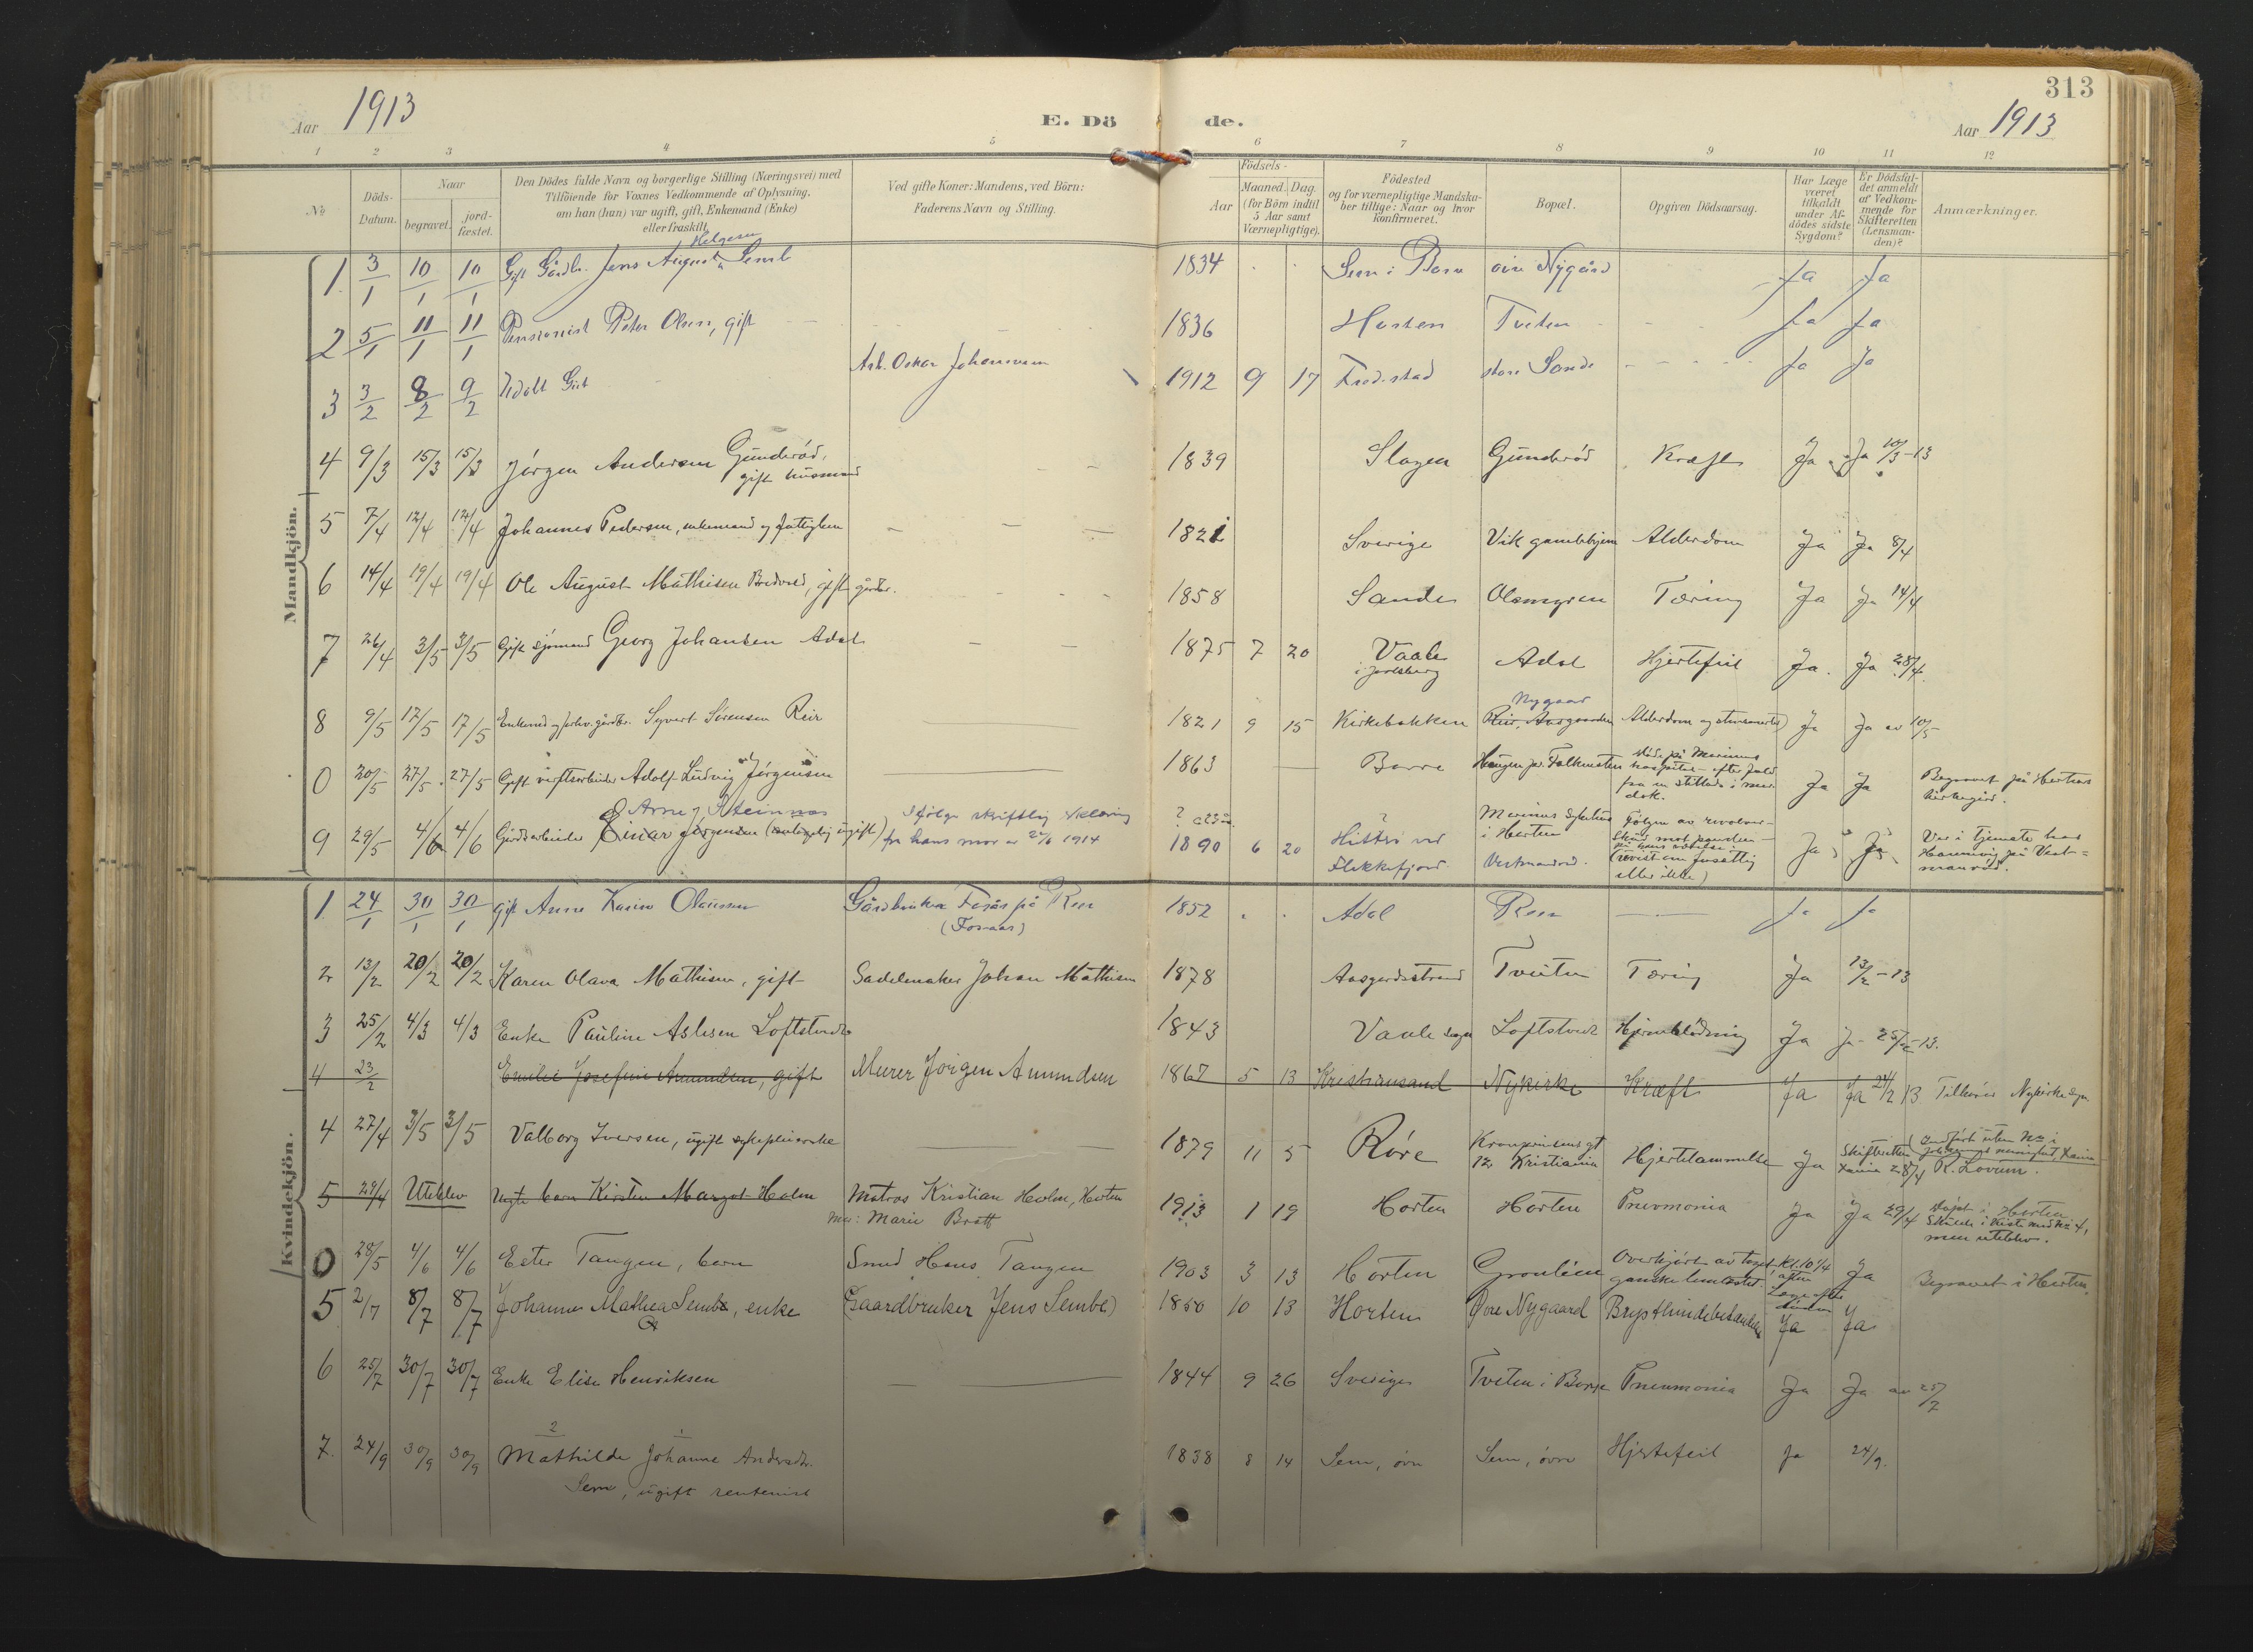 313
Aar 1913
E. Dö de.
Aar 1913
1 2 3 4 5 6 7 8 9 10 11 12
No
Döds-
Datum.
Naar
begravet.
jord-
fæstet.
Den Dödes fulde Navn og borgerlige Stilling (Næringsvei) med
Tilföiende for Voxnes Vedkommende af Oplysning.
om han (hun) var ugift, gift, Enkemand (Enke)
eller fraskilt.
Ved gifte Koner: Mandens, ved Börn:
Faderens Navn og Stilling.
Födsels-
Aar
Maaned. Dag.
(for Börn indtil
5 Aar samt
Værnepligtige).
Födested
og for værnepligtige Mandska-
ber tillige: Naar og hvor
konfirmeret.
Bopæl.
Opgiven Dödsaarsag.
Har Læge
været
tilkaldt
under Af-
dödes sidste
Sygdom?
Er Dödsfal-
det anmeldt
af Vedkom-
mende for
Skifteretten
(Lensman-
den)?
Anmærkninger.
Mandkjön.
Helgesen
1 3/1 10/1 10/1 Gift Gårdbr. Jens August Semb 1834 Sem i Borre øvre Nygård Ja Ja
2 5/1 11/1 11/1 Pensionist Peter Olsen, gift 1836 Horten Tveten Ja Ja
3 3/2 8/2 9/2 Udøbt Gut Arb. Oskar Johannesen 1912 9 17 Fredrikstad store Sande Ja Ja
4 9/3 15/3 15/3 Jørgen Andersen Gunderød, 1839 Slagen Gunderød Kræft Ja Ja 10/3-13
gift husmand
5 7/4 12/4 12/4 Johannes Pedersen, enkemand og fattiglem 1821 Sverige Vik gamlehjem Alderdom Ja Ja 8/4
6 14/4 19/4 19/4 Ole August Mathisen Bredved, gift gårdbr. 1858 Sande Olsmyren Tæring Ja Ja 14/4
7 26/4 3/5 3/5 Gift sjømand Georg Johansen Adal 1875 7 20 Vaale Adal Hjertefeil Ja. Ja 28/4
i Jarlsberg
Nygaard
8 9/5 17/5 17/5 Enkemd og forhv. gårdbr. Syvert Sørensen Reir 1821 9 15 Kirkebakken Reir, Aasgaarden Alderdom og Ja Ja av 10/5
0 20/5 27/5 27/5 Gift verftsarbeider Adolf Ludvig Jørgensen 1863 Borre Haugen pr. Falkensten døde på Marinens
hospital efter fald
fra en stillads i
dok. Ja Ja Begravet på Hortens
kirkegård.
Arne Steinnes Ifølge skriftlig erklæring
9 29/5 4/6 4/6 Gårdsarbeider Einar Jørgensen (antagelig ugift) fra hans mor av 24/6 1914 1890 6 20 Hitterø ved
Flekkefjord Marinens Sykehus
i Horten
Vestmanrød. Følgen av revolver-
skud mot panden
(uvist om forsætlig
eller ikke) Ja Ja Var i tjeneste hos
Hannevig på Vest-
manrød.
Kvindekjön.
1 24/1 30/1 30/1 gift Anne Karine Olaussen Gårdbruker Foraas på Reir 1852 Adal Reir Ja Ja
(Fornaas)
2 13/2 20/2 20/2 Karen Olava Mathisen, gift Sadelmaker Johan Mathisen 1878 Aasgårdsstrand Tveiten Tæring Ja 13/2-13
3 25/2 4/3 4/3 Enke Pauline Aslesen Loftstvedt 1843 Vaale sogn Loftstvedt Hjerneblødning Ja Ja 25/2-13.
4 23/2 Emilie Josefine Amundsen, gift Murer Jørgen Amundsen 1867 5 13 Kristiansand Nykirke Kræft Ja Ja 24/2 13 Tilhører Nykirke sogn.
4 27/4 3/5 3/5 Valborg Iversen, ugift sykepleierske 1879 11 5 Røre Kronprinsensgt
12 Kristiania Hjertelammelse Ja Skifteretten
Xania 28/4 Indført uten No i
Xania
R. Lovum.
5 29/4 Uteblev Ugte barn Kirsten Margot Holm Matros Kristian Holm, Horten 1913 1 19 Horten Horten Pneumonia Ja Ja 29/4 døpt i Horten
Mor: Marie Bratt
Skulde i kiste med No 4,
men uteblev.
0 28/5 4/6 4/6 Ester Tangen, barn Smed Hans Tangen 1903 3 13 Horten Gronlien Overkjørt av toget Kl. 10 1/4
ganske lemlæstet. Ja Begravet i Horten.
5 2/7 8/7 8/7 Johanne Mathea Semb, enke (Gaardbruker Jens Sembe) 1850 10 13 Horten Øvre Nygaard Brysthindebetændelse Ja Ja
6 25/7 30/7 30/7 Enke Elise Henriksen 1844 9 26 Sverige Tveten i Borre Pneumonia Ja Ja av 25/7
2 1
7. 24/9 30/9 30/9 Mathilde Johanne Andersdtr. 1838 8 14 Sem, øvre Sem, øvre Hjertefeil Ja 24/9.
Sem, ugift rentenist